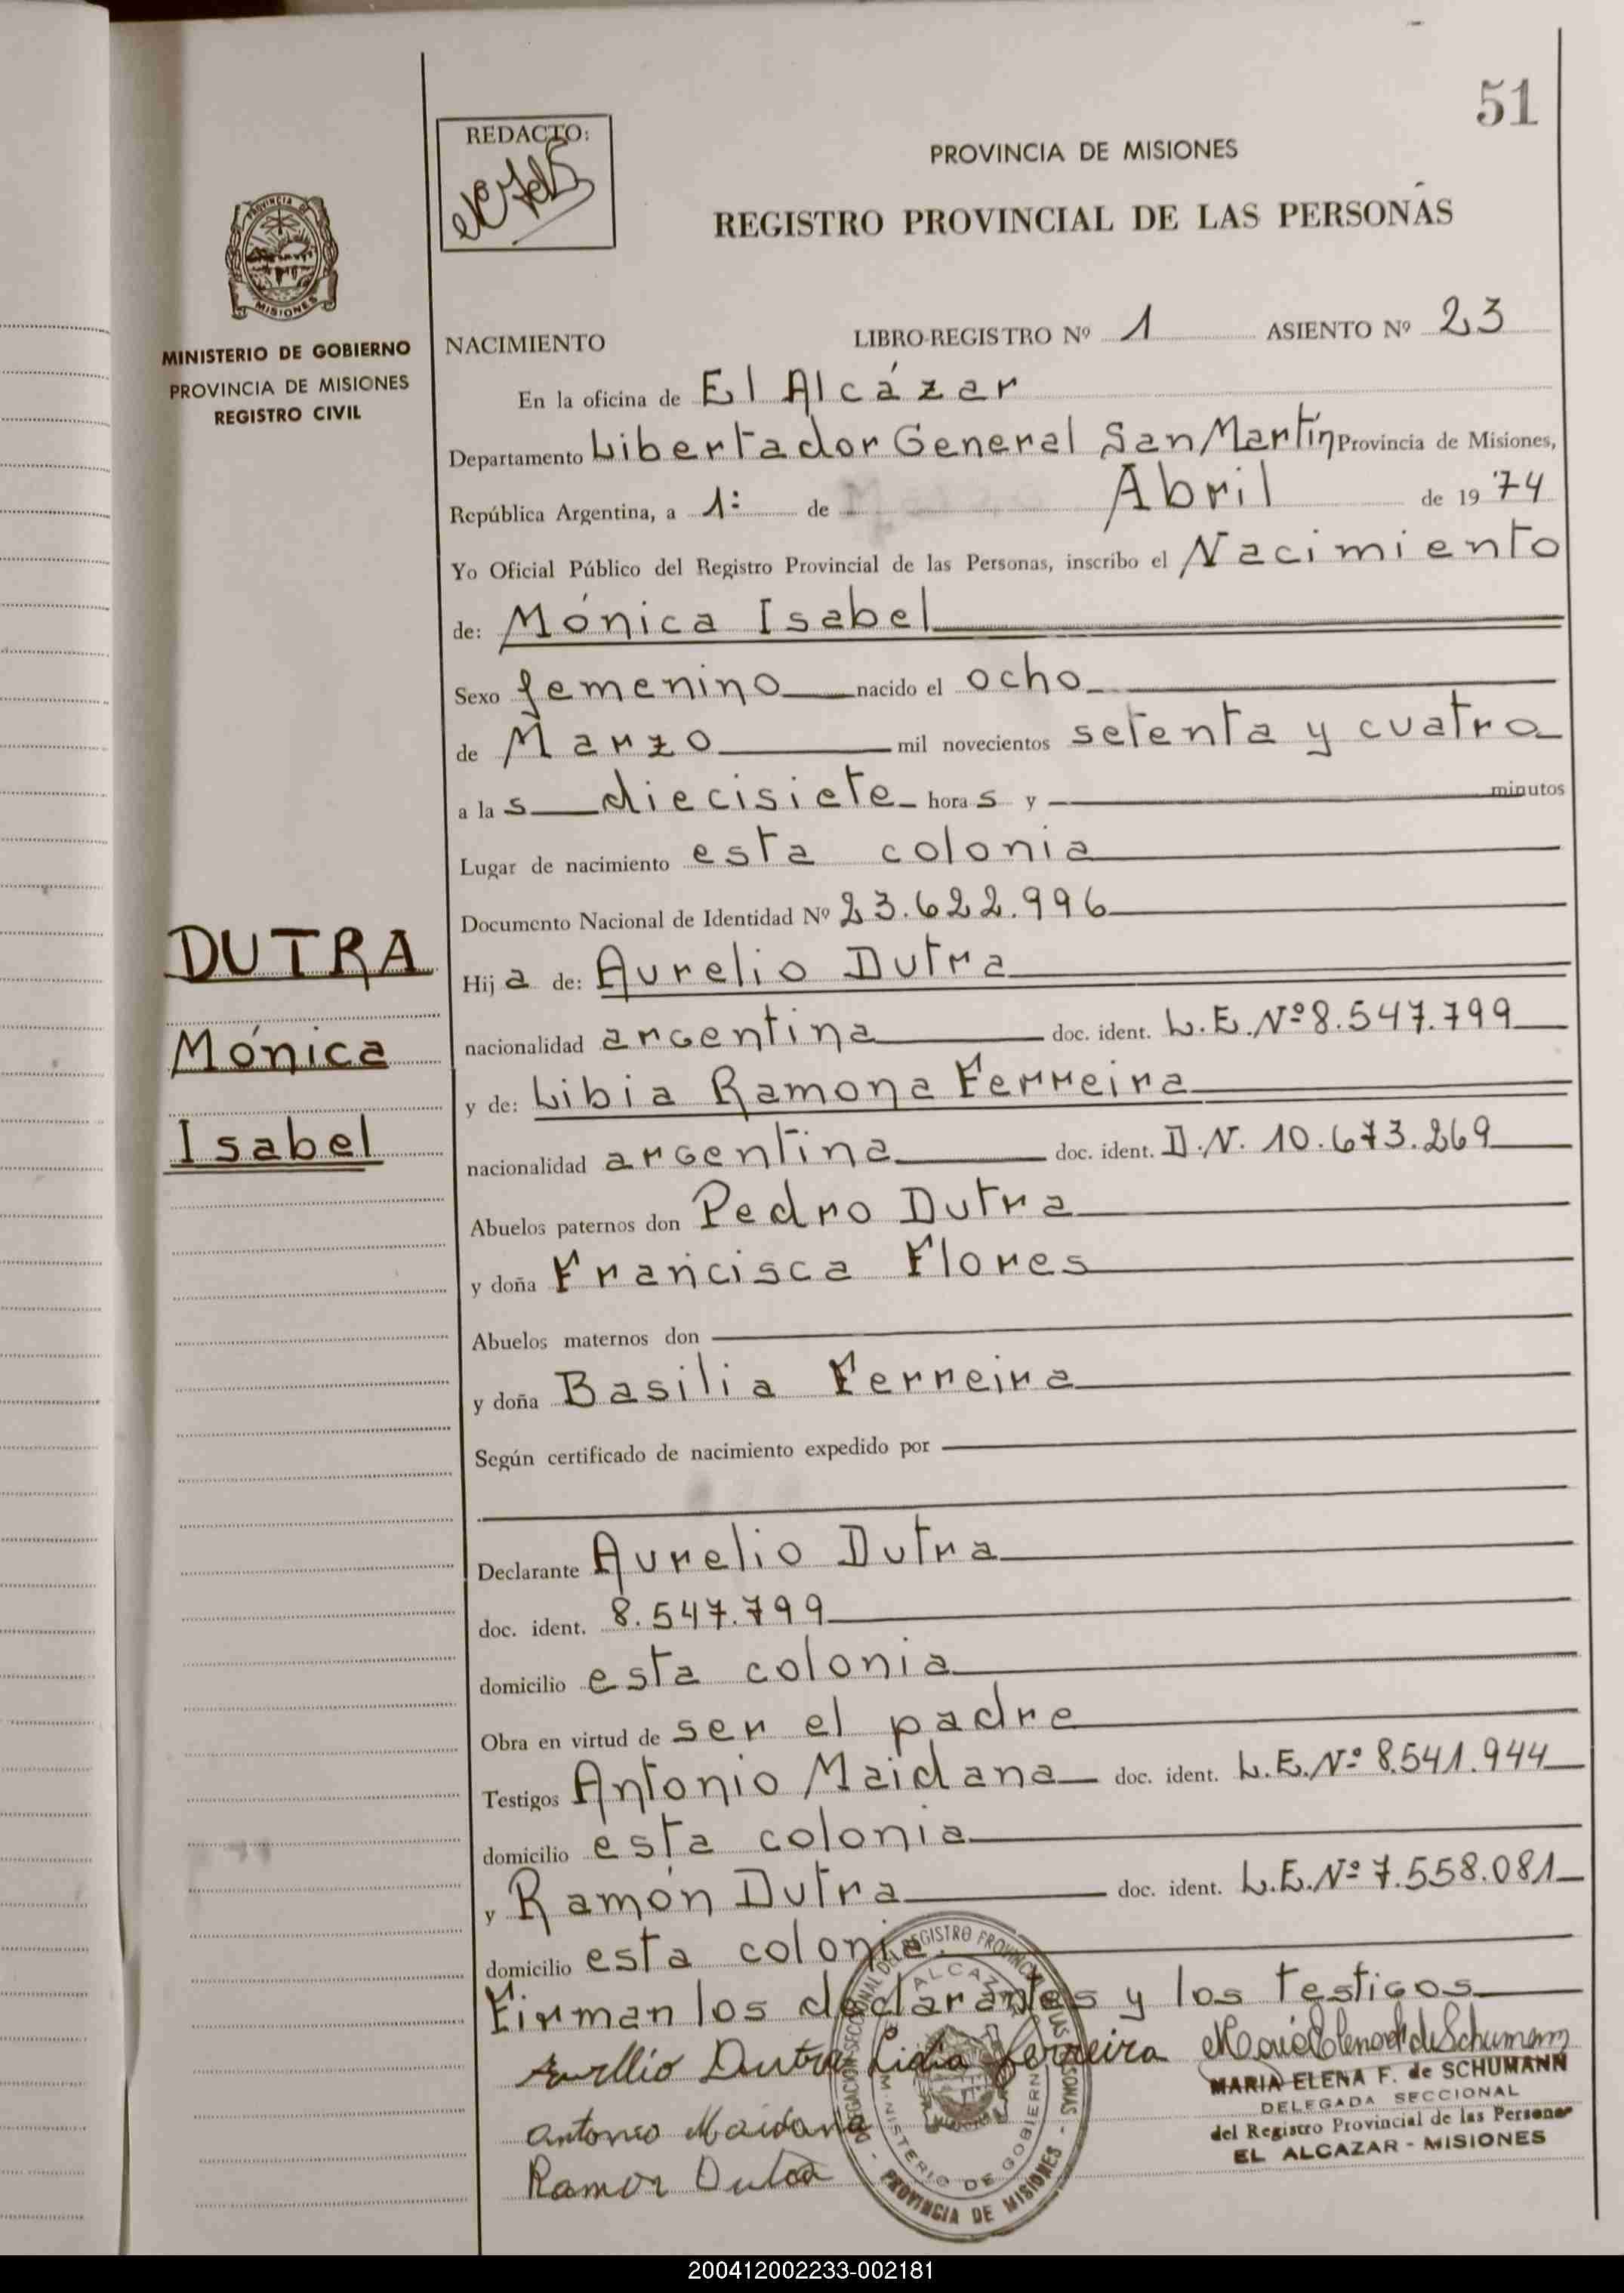 51
REDACTO:
PROVINCIA DE MISIONES
REGISTRO PROVINCIAL DE LAS PERSONAS
MISIONES
MINISTERIO DE GOBIERNO
PROVINCIA DE MISIONES
REGISTRO CIVIL
NACIMIENTO LIBRO-REGISTRO Nº 1 ASIENTO Nº 23
En la oficina de El Alcázar
Departamento Libertador General San Martín Provincia de Misiones,
República Argentina, a 1º de Abril de 1974
Yo Oficial Público del Registro Provincial de las Personas, inscribo el Nacimiento
de: Mónica Isabel
Sexo femenino nacido el ocho
de Marzo mil novecientos setenta y cuatro
a las diecisiete horas y minutos
Lugar de nacimiento esta colonia
Documento Nacional de Identidad Nº 23.622.996
DUTRA
Mónica
Isabel
Hija de: Aurelio Dutra
nacionalidad argentina doc. ident. L.E.Nº 8.547.799
y de: Libia Ramona Ferreira
nacionalidad argentina doc. ident. D.N. 10.673.269
Abuelos paternos don Pedro Dutra
y doña Francisca Flores
Abuelos maternos don
y doña Basilia Ferreira
Según certificado de nacimiento expedido por
Declarante Aurelio Dutra
doc. ident. 8.547.799
domicilio esta colonia
Obra en virtud de ser el padre
Testigos Antonio Maidana doc. ident. L.E.Nº 8.541.944
domicilio esta colonia
y Ramón Dutra doc. ident. L.E.Nº 7.558.081
domicilio esta colonia.
Firman los declarantes y los testigos
Aurellio Dutra Lidia Ferreira
MARIA ELENA F. de SCHUMANN
DELEGADA SECCIONAL
del Registro Provincial de las Personas
EL ALCAZAR - MISIONES
Antonio Maidana
Ramon Dutra
DELEGACION SECCIONAL DEL REGISTRO PROVINCIAL DE LAS PERSONAS - PROVINCIA DE MISIONES -
ALCAZAR
MINISTERIO DE GOBIERNO
200412002233-002181